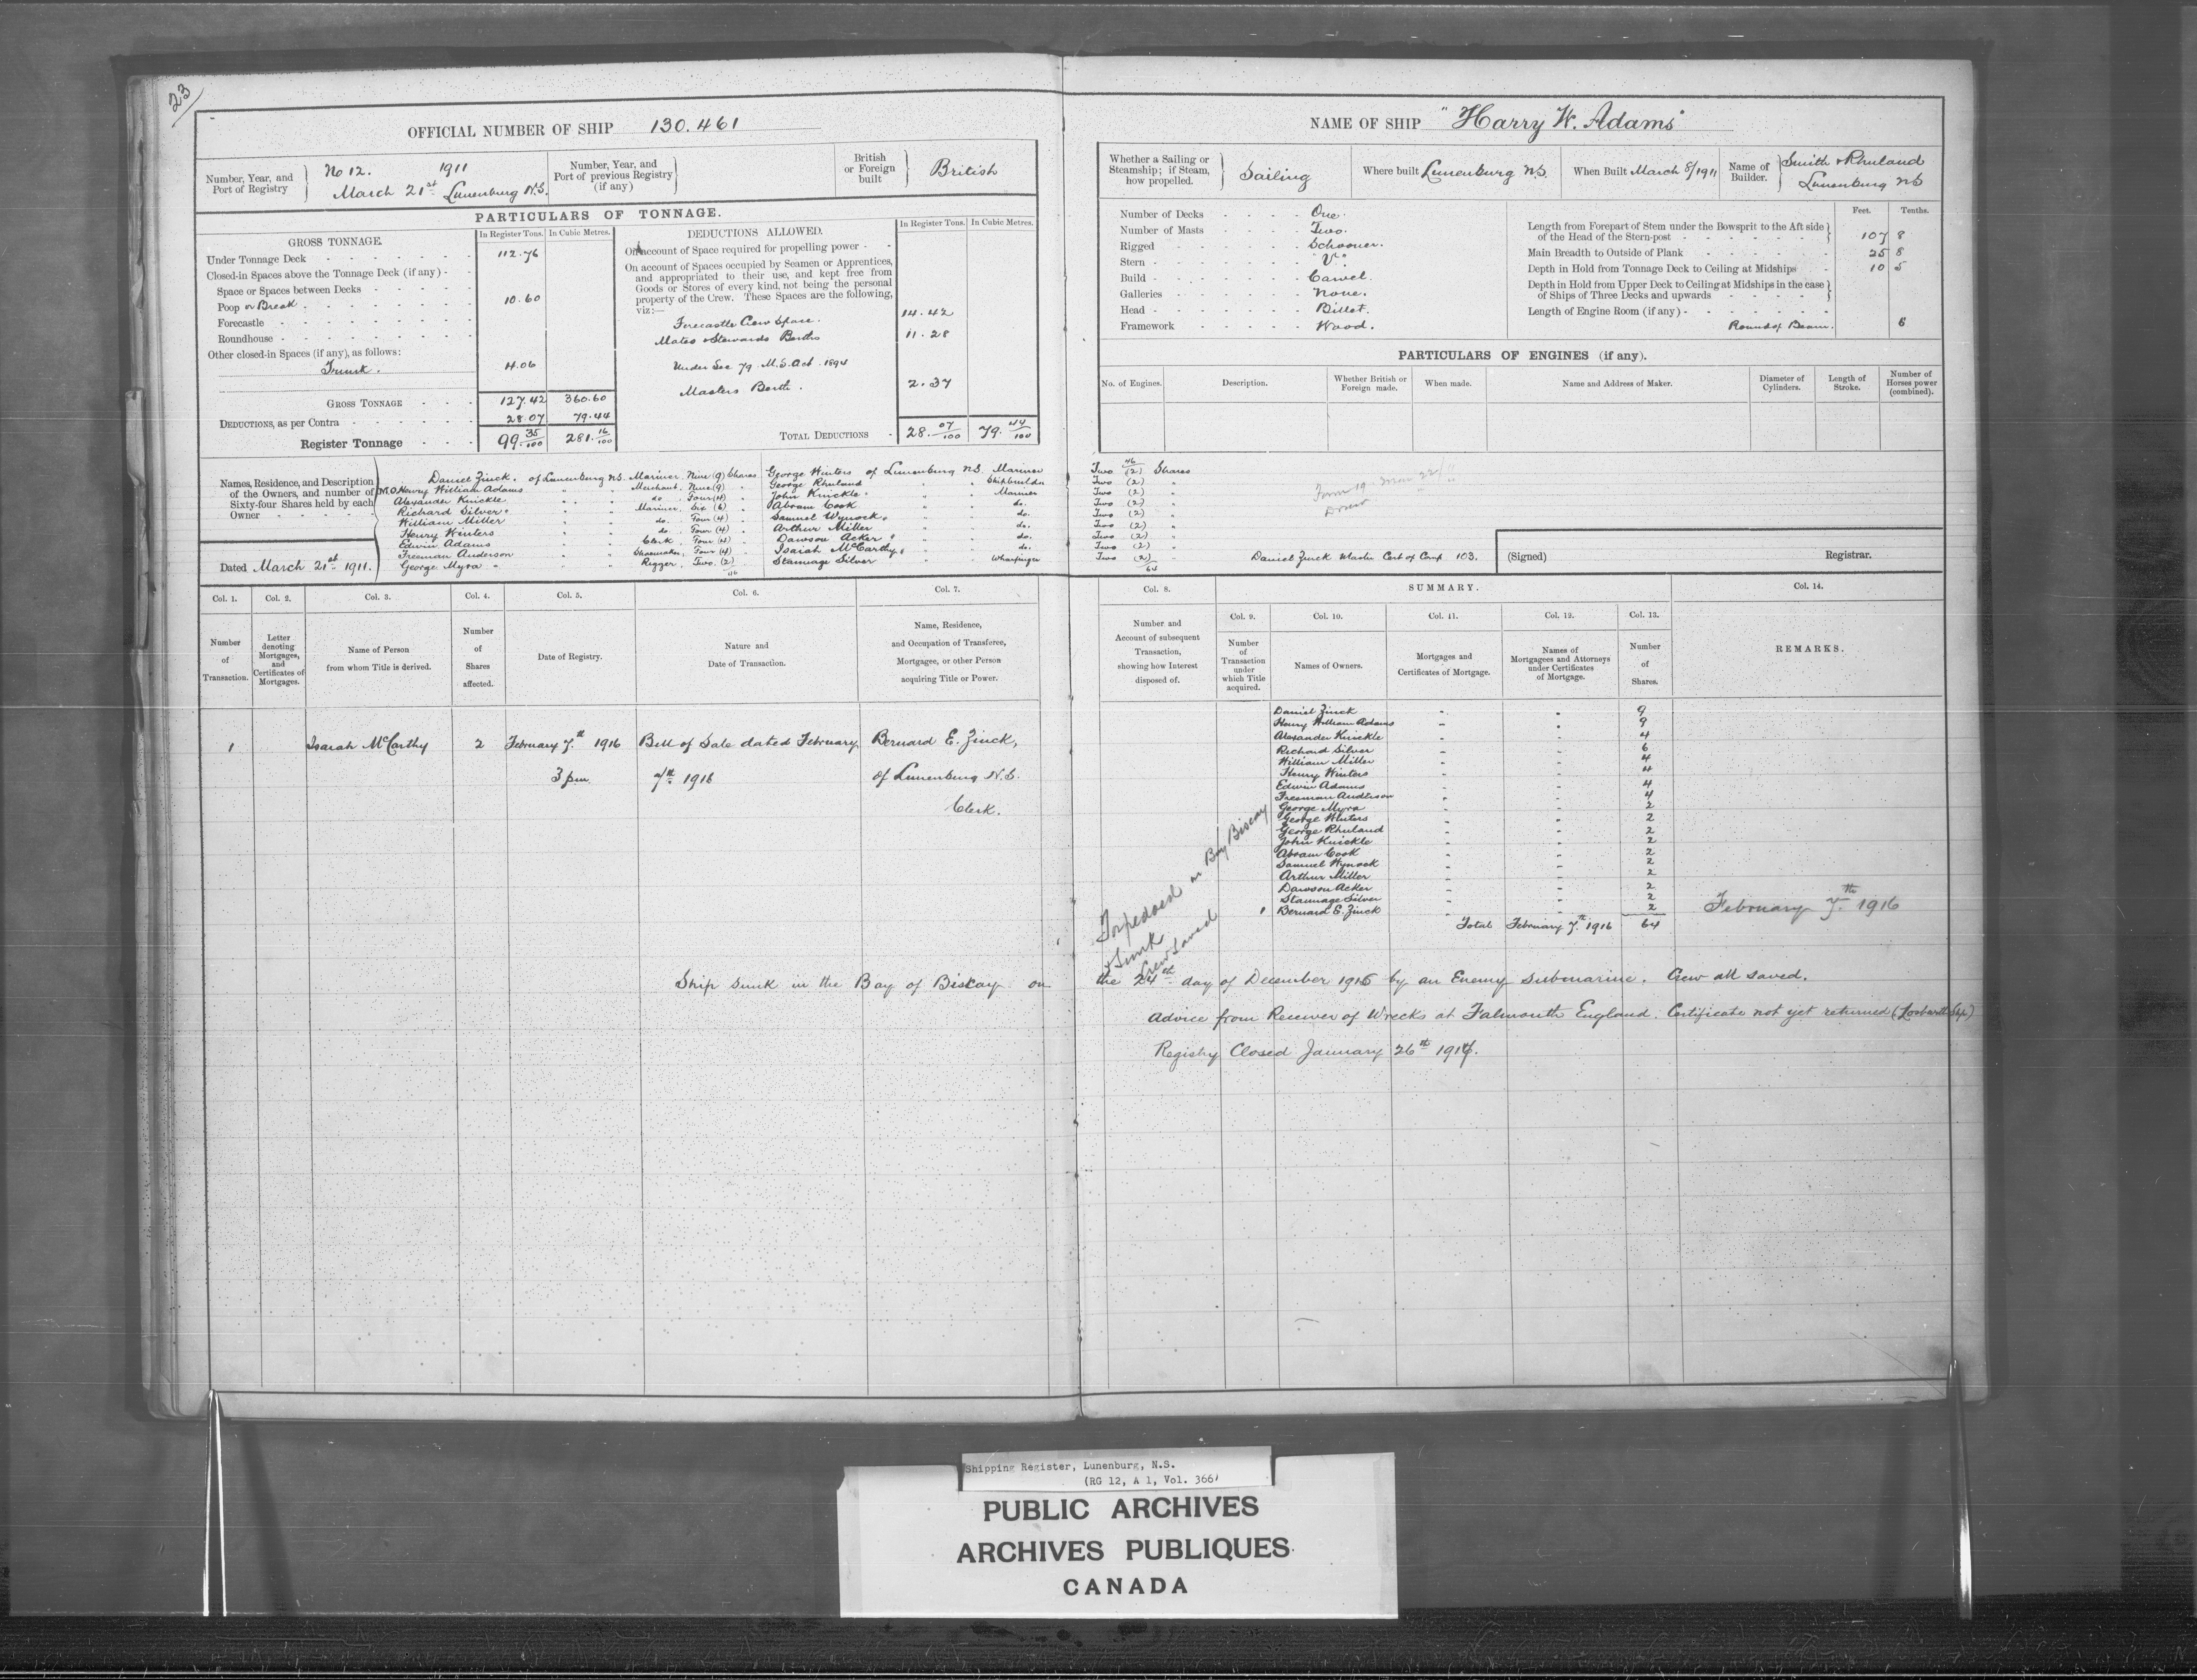 23
OFFICIAL NUMBER OF SHIP 130.461
Number, Year, and Port of Registry
No 12. 1911
March 21st Lunenburg N.S.
Number, Year, and Port of previous Registry (if any)
British or Foreign built
British
PARTICULARS OF TONNAGE.
GROSS TONNAGE.
In Register Tons. In Cubic Metres.
Under Tonnage Deck 112.76
Closed-in Spaces above the Tonnage Deck (if any)
Space or Spaces between Decks
Poop or Break 10.60
Forecastle
Roundhouse
Other closed-in Spaces (if any), as follows:
Trunk. 4.06
GROSS TONNAGE 127.42 360.60
DEDUCTIONS, as per Contra 28.07 79.44
Register Tonnage 99.35/100 281.16/100
DEDUCTIONS ALLOWED.
In Register Tons. In Cubic Metres.
On account of Space required for propelling power
On account of Spaces occupied by Seamen or Apprentices,
and appropriated to their use, and kept free from
Goods or Stores of every kind, not being the personal
property of the Crew. These Spaces are the following,
viz:—
Forecastle Crew Space. 14.42
Mates & Stewards Berths 11.28
Under Sec 79. M.S. Act. 1894
Masters Berth. 2.37
TOTAL DEDUCTIONS 28.07/100 79.44/100
Names, Residence, and Description
of the Owners, and number of
Sixty-four Shares held by each
Owner
Dated March 21st 1911.
Daniel Zinck. of Lunenburg N.S. Mariner, Nine (9) Shares
M.O. Henry William Adams " " Merchant, Nine (9) "
Alexander Knickle. " " do. Four (4) "
Richard Silver. " " Mariner, Six (6) "
William Miller " " do. Four (4) "
Henry Winters " " do. Four (4) "
Edwin Adams " " Clerk, Four (4) "
Freeman Anderson " " Shoemaker, Four (4) "
George Myra " " Rigger, Two. (2) "
46
George Winters of Lunenburg N.S. Mariner
George Rhuland " " Shipbuilder
John Knickle " " Mariner
Abram Cook " " do.
Samuel Wynock " " do.
Arthur Miller " " do.
Dawson Acker " " do.
Isaiah McCarthy " " do.
Stannage Silver " " Wharfinger
NAME OF SHIP "Harry W. Adams"
Whether a Sailing or Steamship; if Steam, how propelled.
Sailing
Where built Lunenburg N.S.
When Built March 8/1911
Name of Builder.
Smith & Rhuland
Lunenburg N.S.
Number of Decks One.
Number of Masts Two.
Rigged Schooner.
Stern "V"
Build Carvel.
Galleries None.
Head Billet.
Framework Wood.
Feet. Tenths.
Length from Forepart of Stem under the Bowsprit to the Aft side
of the Head of the Stern-post 107 8
Main Breadth to Outside of Plank 25 8
Depth in Hold from Tonnage Deck to Ceiling at Midships 10 5
Depth in Hold from Upper Deck to Ceiling at Midships in the case
of Ships of Three Decks and upwards
Length of Engine Room (if any)
Round of Beam. 6
PARTICULARS OF ENGINES (if any).
No. of Engines. Description. Whether British or Foreign made. When made. Name and Address of Maker. Diameter of Cylinders. Length of Stroke. Number of Horses power (combined).
46
Two (2) Shares
Two (2) "
Two (2) "
Two (2) "
Two (2) "
Two (2) "
Two (2) "
Two (2) "
Two (2) "
64
Form 19
Daniel Zinck Master Cert of Comp 103.
(Signed) Registrar.
Col. 1. Col. 2. Col. 3. Col. 4. Col. 5. Col. 6. Col. 7.
Number of Transaction.
Letter denoting Mortgages, and Certificates of Mortgages.
Name of Person from whom Title is derived.
Number of Shares affected.
Date of Registry.
Nature and Date of Transaction.
Name, Residence, and Occupation of Transferee, Mortgagee, or other Person acquiring Title or Power.
Col. 8. SUMMARY. Col. 14.
Col. 9. Col. 10. Col. 11. Col. 12. Col. 13.
Number and Account of subsequent Transaction, showing how Interest disposed of.
Number of Transaction under which Title acquired.
Names of Owners.
Mortgages and Certificates of Mortgage.
Names of Mortgagees and Attorneys under Certificates of Mortgage.
Number of Shares.
REMARKS.
1 Isaiah McCarthy 2 February 7th 1916 Bill of Sale dated February Bernard E. Zinck,
3 pm 7th 1916 of Lunenburg N.S.
Clerk.
Daniel Zinck 9
Henry William Adams 9
Alexander Knickle 4
Richard Silver 6
William Miller 4
Henry Winters 4
Edwin Adams 4
Freeman Anderson 4
George Myra 2
George Winters 2
George Rhuland 2
John Knickle 2
Abram Cook 2
Samuel Wynock 2
Arthur Miller 2
Dawson Acker 2
Stannage Silver 2
1 Bernard E. Zinck 2
Total February 7th 1916 64
February 7th 1916
Torpedoed in Bay Biscay
& Sunk
Crew saved
Ship sunk in the Bay of Biscay on the 24th day of December 1916 by an Enemy Submarine. Crew all saved.
Advice from Receiver of Wrecks at Falmouth England. Certificate not yet returned (Lost with Ship)
Registry Closed January 26th 1917.
Shipping Register, Lunenburg, N.S.
(RG 12, A 1, Vol. 366)
PUBLIC ARCHIVES
ARCHIVES PUBLIQUES
CANADA